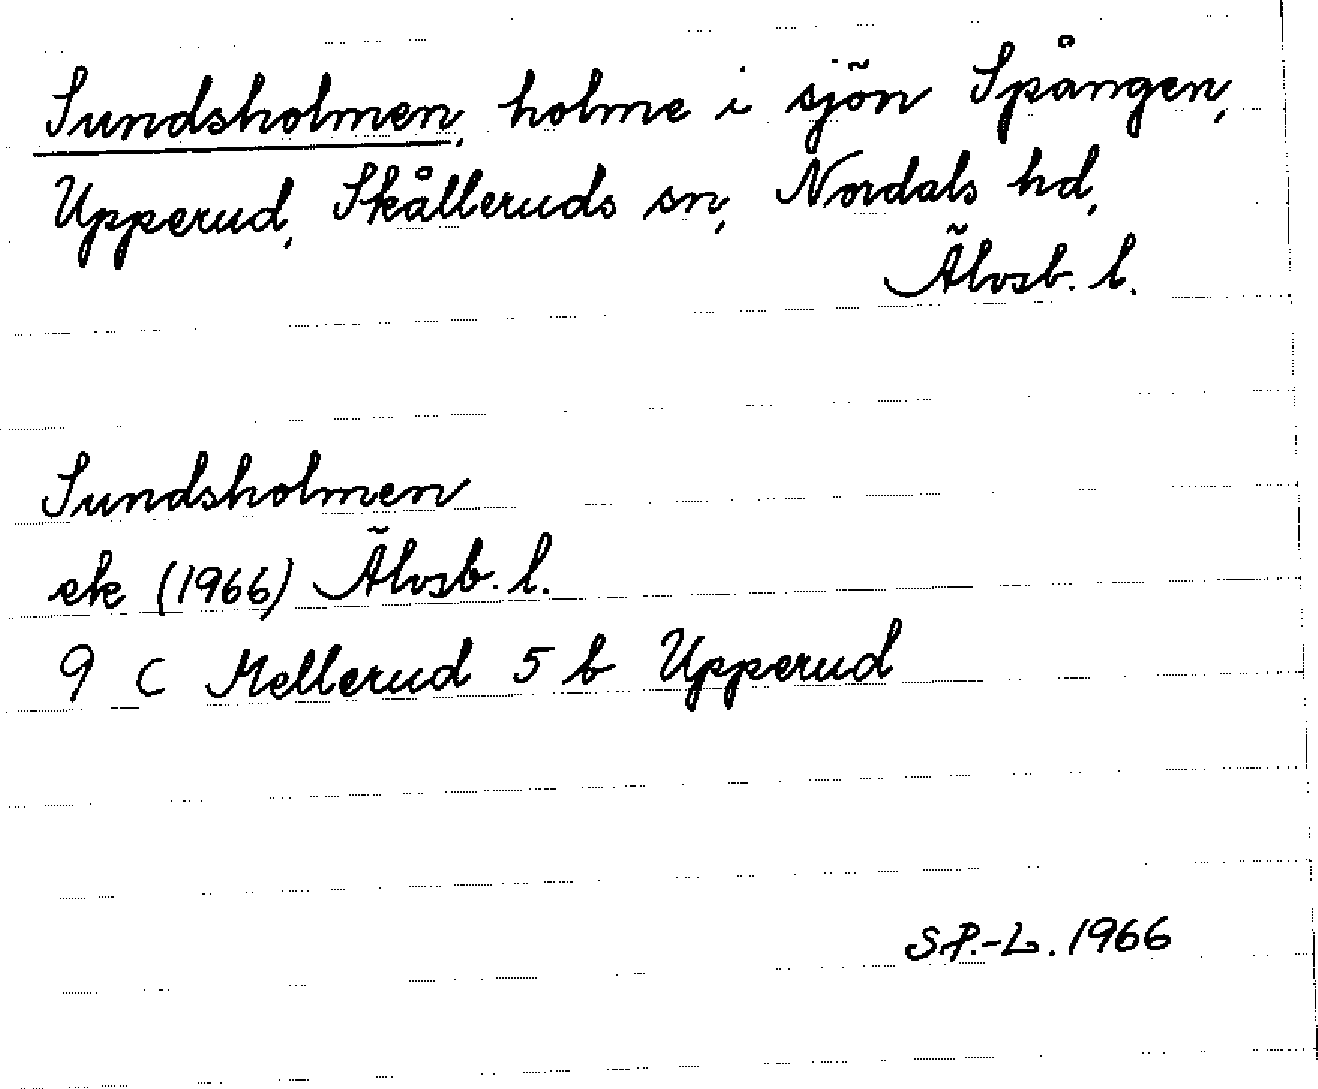 Sundsholmen, holme i sjön Spången,
Upperud, Skålleruds sn, Nordals hd,
Älvsb. l.
Sundsholmen
ek (1966) Älvsb. l.
9 C Mellerud 5 b Upperud
S.P.-L. 1966